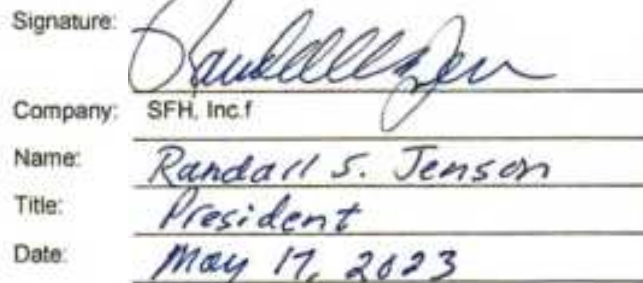 Signature:
Company: SFH, Inc.f
Name: Randall S. Jenson
Title: President
Date: May 17, 2023